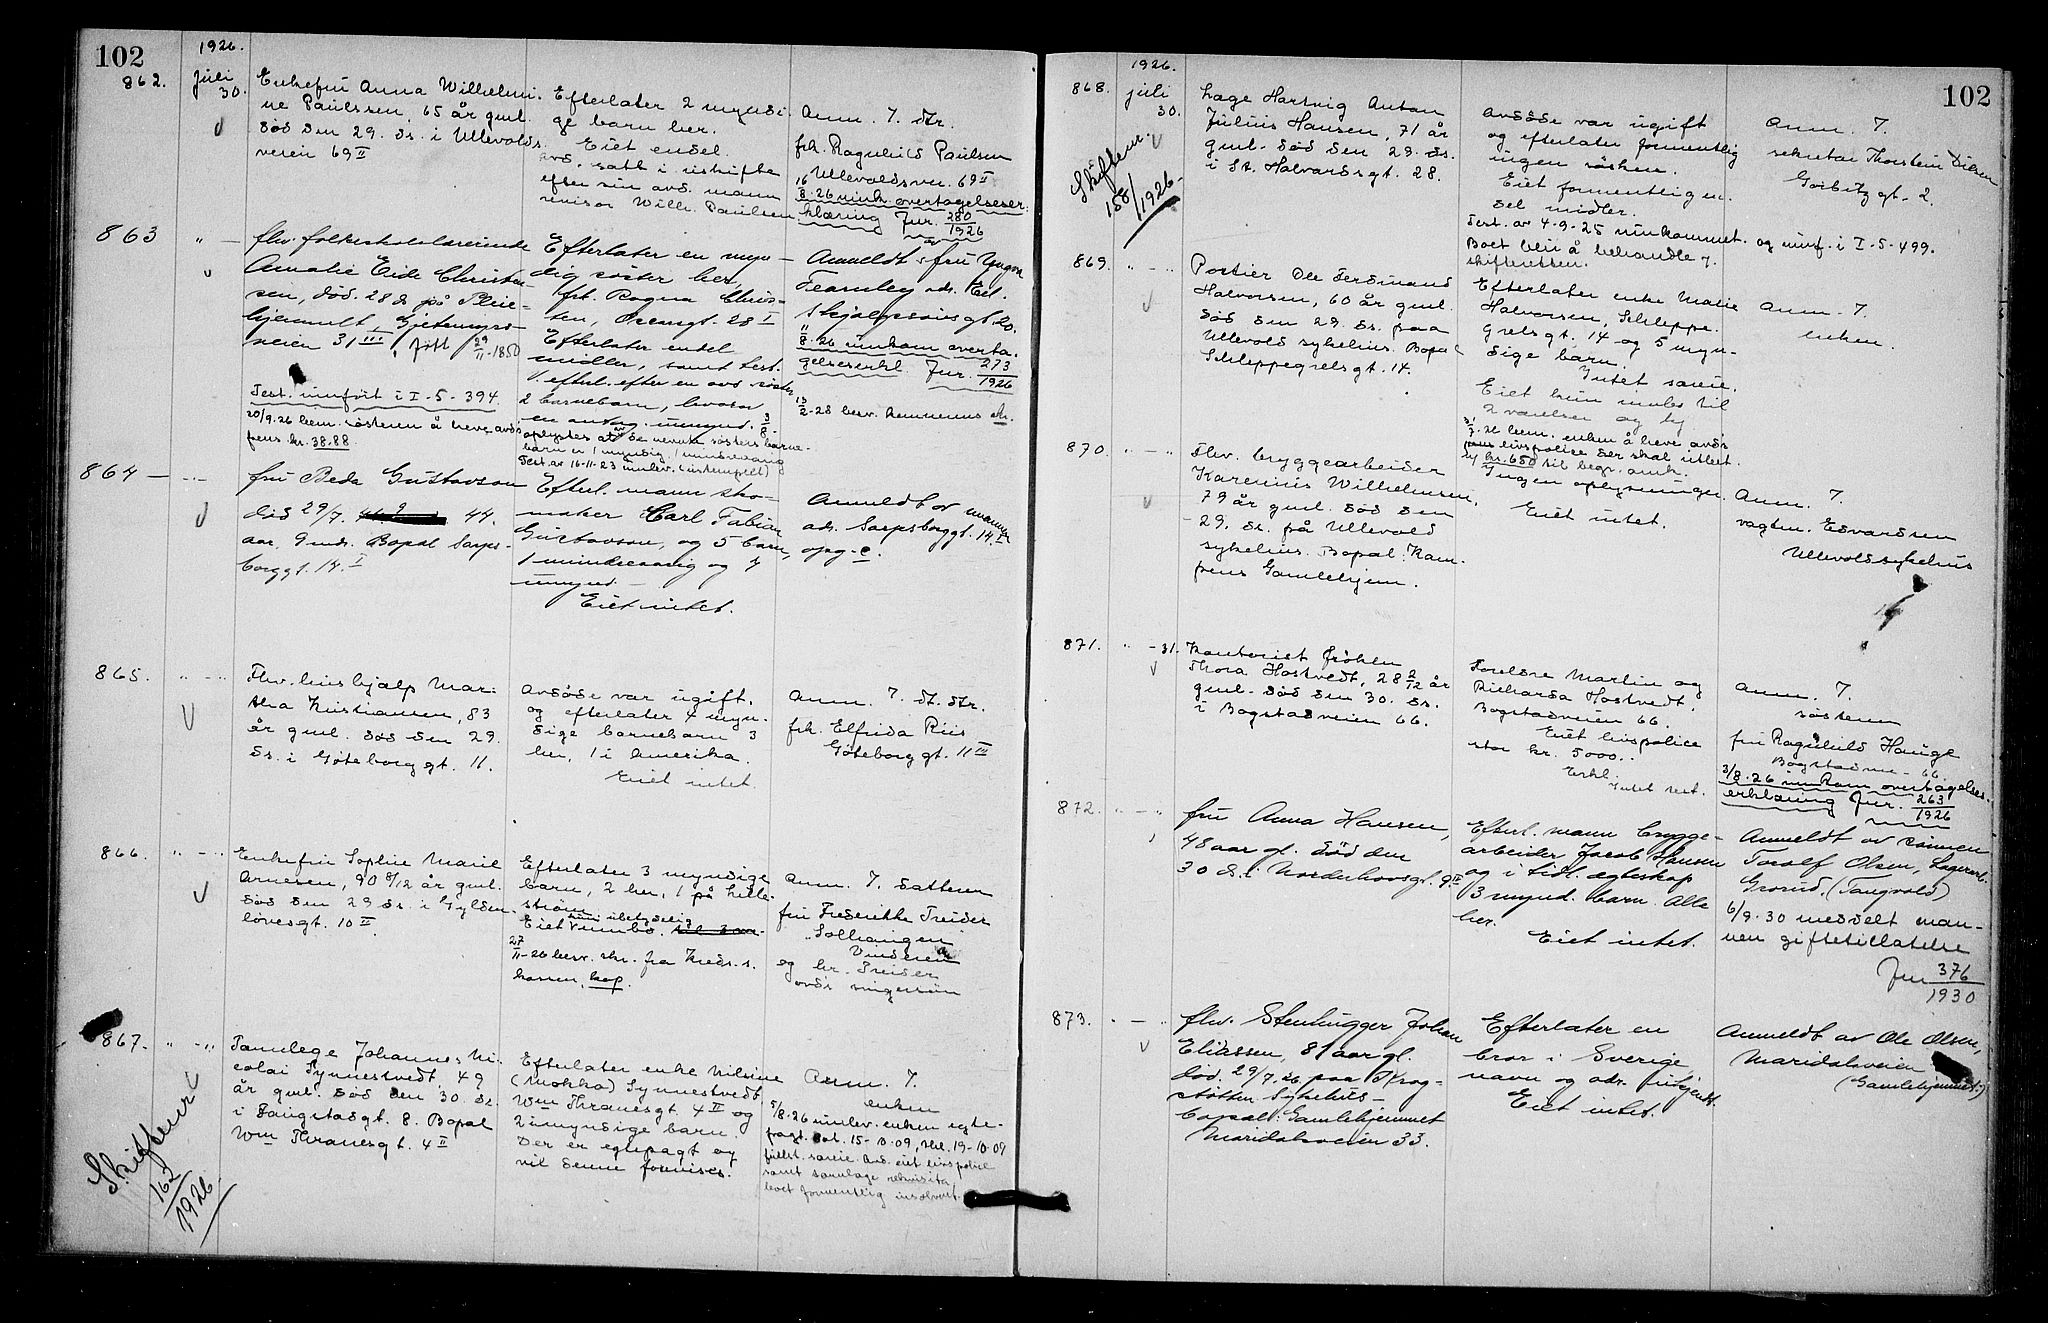 102
1926.
862.
Juli
30.
Enkefru Anna Wilhelmi-
ne Paulssen, 65 år gml.
død den 29. ds. i Ullevolds-
veien 69 II
Efterlater 2 myndi-
ge barn her.
Eiet endel.
Avd. satt i uskifte
efter sin avd. mann
revisor Wilh. Paulsen
Anm. 7. dtr.
frk. Ragnhild Paulsen
Ullevoldsvei. 69 II
16/8-26 innk. overtagelseser-
klæring Jnr. 280/1926
863
" —
fhv. folkeskolelærerinde
Amalie Eide Christen-
sen, død. 28 ds på Pleie-
hjemmet, Gjetemyrs-
veien 31 III, født 29/11-1850
Test. innført i I-5-394.
20/9.26 bem. søsteren å heve avdø
pens kr. 38.88.
Efterlater en myn-
dig søster her,
frk. Ragna Chris-
ten, Oscarsgt. 28 I
Efterlater endel
midler, samt test.
V. efterl. efter en avd søster
2 barnebarn, hvorav
en antag. umynd. 3/8-
oplystes at av de nevnte søsters barne-
barn er 1 myndig, 1 mindreaarig
Test. av 16-11-23 innlev. (ustemplet)
Anmeldt av fru Yngva
Fearnley ads. Eil.
Skjalgssønsgt. 20.
11/8-26 innkom overta-
gelseserkl. Jnr. 273/1926
13/2-28 besv. kemnerens skr.
864 —
fru Beda Gustavson
død 29/7. 44.
aar, 9 mdr. Bopæl Sarps-
borggt. 14. I
Efterl. mann sko-
maker Carl Fabian
Gustavson, og 5 barn,
1 mindreaarig og 4
umynd. —
Eiet intet.
Anmeldt av mannen
ads. Sarpsborggt. 14. I
opg. e.
865.
Fhv. hushjælp Mar-
tha Kristiansen, 83
år gml. død den 29.
ds. i Gøteborggt. 11.
Avdøde var ugift.
og efterlater 4 myn-
dige barnebarn 3
her, 1 i Amerika.
Eiet intet.
Anm. 7. dt. dtr.
frk. Elfrida Riis
Gøteborggt. 11 III
866.
Enkefru Sophie Marie
Arnesen, 90 8/12 år gml.
død den 29 ds. i Gylden-
løvesgt. 10 II
Efterlater 3 myndige
barn, 2 her, 1 på Lille-
strøm.
Eiet kun ubetydelig innbo.
27/11-26 besv. skr. fra Kreds. s.
kassen, kop.
Anm. 7. datteren
fru Frederikke Treider
Solhaugen
Vinderen
og hr. Treider
avd's svigersøn
867.
Tannlege Johannes Ni-
colai Synnestvedt, 49
år gml. død den 30. ds.
i Langstadsgt. 8. Bopæl
Wm Thranesgt. 4 II
Skifterev
162/1926.
Efterlater enke Nilsine
(Mokka) Synnestvedt
Wm Thranesgt. 4 II og
2 umyndige barn.
Der er egtepagt og
vil denne forevises.
Anm. 7.
enken
5/8-26 innlev. enken egte-
pagt dat. 15-10-09, thl. 19-10-09
fullst. særeie. Avd. eiet livspolice
samt tannlæge rekvisita,
boet formentlig insolvent.
102
1926.
868.
Juli
30.
Skifterev.
158/1926.
Læge Hartvig Anton
Julius Hansen, 71 år
gml. død den 29. ds.
i St. Halvardsgt. 28.
Avdøde var ugift
og efterlater formentlig
ingen søsken.
Eiet formentlig en-
del midler.
Test. av 4-9-25 innkommet. og innf. i I-5-499.
Boet blir å behandle v.
skifteretten.
Anm. 7.
sekretær Thorstein Diesen
Gorbitzgt. 2.
869.
Portier Ole Ferdinand
Halvorsen, 60 år gml.
død den 29. ds. paa
Ullevold sykehus. Bopæl
Schleppegrelsgt. 14.
Efterlater enke Marie
Halvorsen, Schleppe-
grelsgt. 14 og 5 myn-
dige barn.
Intet særeie.
Eiet kun møbler til
2 værelser og tøj
31/7-26 bem. enken å heve avdr
livspolice der skal utbet.
m/ kr. 650 til begr. omk.
Anm. 7.
enken.
870.
Fhv. bryggearbeider
Karenius Wilhelmsen,
79 år gml. død den
29. ds. på Ullevold
sykehus. Bopæl: Kam-
pens Gamlehjem.
Ingen oplysninger.
Eiet intet.
Anm. 7.
vagtm. Edvardsen
Ullevoldsykehus
871.
" - 31.
Kontorist frøken
Thora Hostvedt, 28 2/12 år
gml. død den 30. ds.
i Bogstadveien 66.
Forældre Martin og
Richarda Hostvedt
Bogstadveien 66.
Eiet livspolice
stor kr. 5000.-
Erkl.
intet test.
Anm. 7.
søsteren
fru Ragnhild Hauge
Bogstadvn. 66.
3/8-26 innkom overtagelses-
erklæring Jnr. 263/1926
872.
fru Anna Hansen,
48 aar gl. død den
30 ds. i Nordahlhovsgt. 9 II
Efterl. mann brygge-
arbeider Jacob Hansen
og i tidl. egteskap
3 mynd. barn. Alle
her.
Eiet intet.
Anmeldt av sønnen
Torolf Olsen, Lagerarb.
Grorud, (Tangvold)
6/9.30 meddelt man-
nen giftetillatelse
Jnr 376/1930
873.
fhv. Stenhugger Johan
Eliassen, 81 aar gl.
død. 29/7.26 paa Krog-
støtten Sykehus-
bopæl: Gamlehjemmet
Maridalsveien 33.
Efterlater en
bror i Sverige
navn og ads. ubekjendt.
Eiet intet.
Anmeldt av Ole Olsen,
Maridalsveien
(Gamlehjemmet)